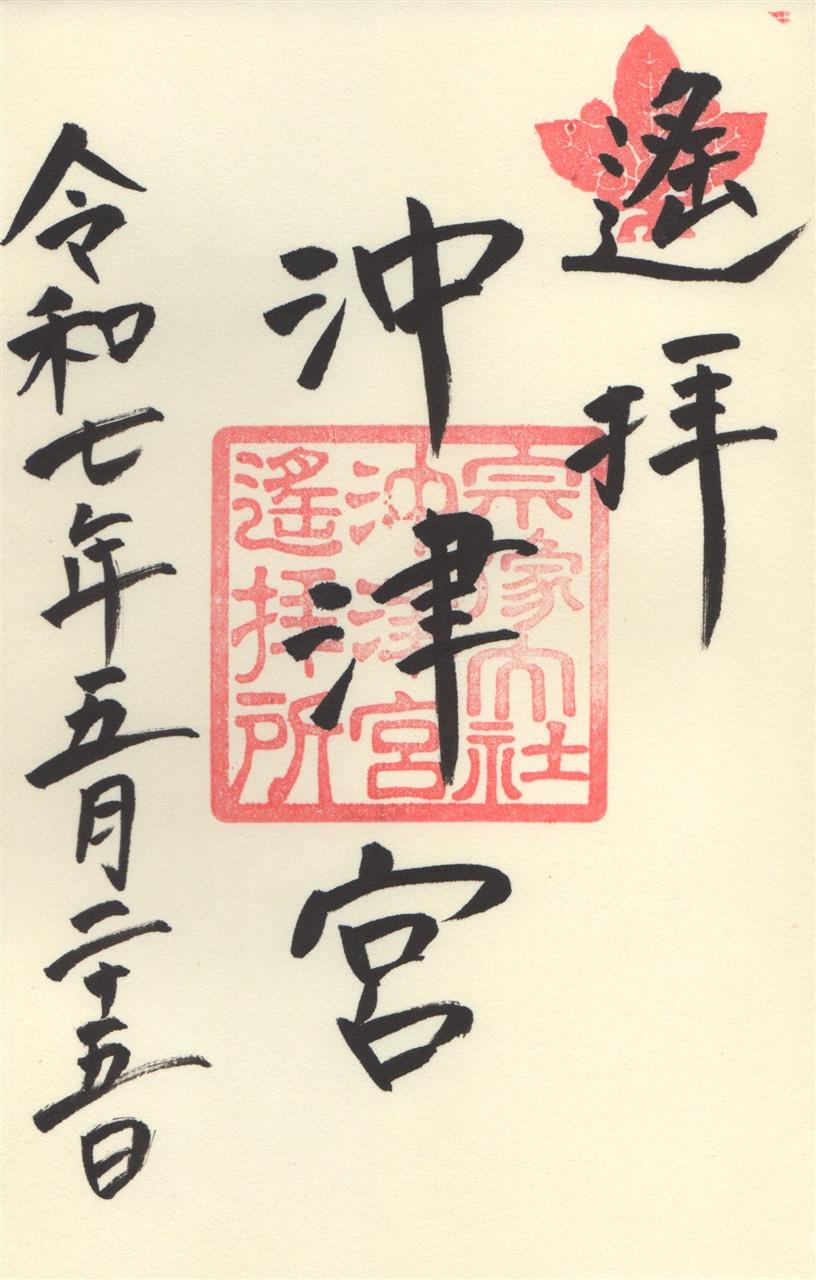 遙拝
沖津宮
宗像大社
沖津宮
遙拝所
令和七年五月二十五日